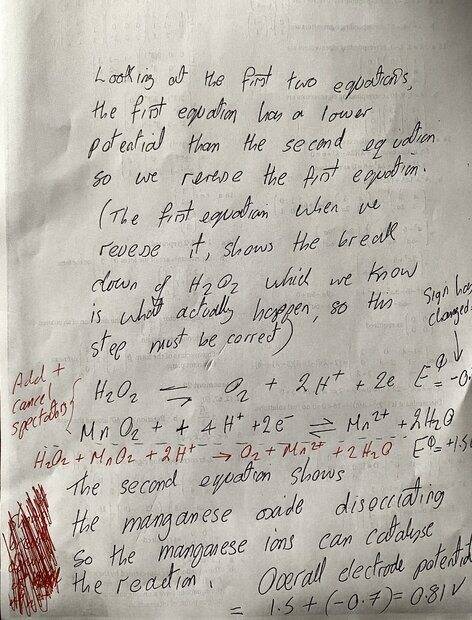 Looking at the first two equations,
the first equation has a lower
potential than the second equation
so we reverse the first equation.
(The first equation when we
revese it, shows the break
down of H₂O₂ which we know
is what actually happen, so this
step must be correct)
Sign has
changed
Add +
cancel
spectators
H₂O₂ ⇌ O₂ + 2H⁺ + 2e E⦵ = -0.
MnO₂ + + 4H⁺ + 2e⁻ ⇌ Mn²⁺ + 2H₂O
H₂O₂ + MnO₂ + 2H⁺ → O₂ + Mn²⁺ + 2H₂O E⦵ = +1.5
The second equation shows
the manganese oxide disocciating
so the manganese ions can catalyse
the reaction. Overall electrode potential
= 1.5 + (-0.7) = 0.81 V